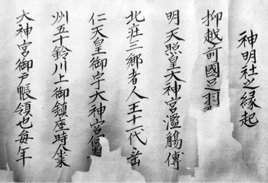 神明社之縁起
抑越前國足羽
明天照皇大神宮濫觴傳
北荘三郷者人王十一代垂
仁天皇御宇大神宮信
州五十鈴川上御鎮座時分
大神宮御戸帳領也毎年